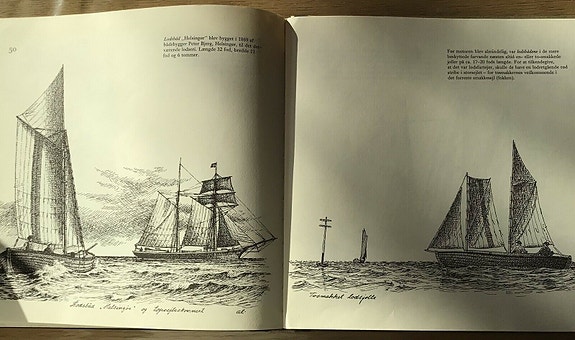 50
Lodsbåd „Helsingør" blev bygget i 1869 af
bådebygger Peter Bjerg, Helsingør, til det
værende lodseri. Længde 32 fod, bredde 11
fod og 6 tommer.
Før motoren blev almindelig, var lodsbådene i de mere
beskyttede farvande næsten altid en- eller to-mastede
joller på ca. 17-20 fods længde. For at tilkendegive,
at det var lodsfartøjer, skulle de have en lodretgående rød
stribe i storsejlet – for tosmakkerens vedkommende i
det forreste smakkesejl (fokken).
Lodsbåd „Helsingør" og topsejlsskonnert
Tosmakket lodsjolle